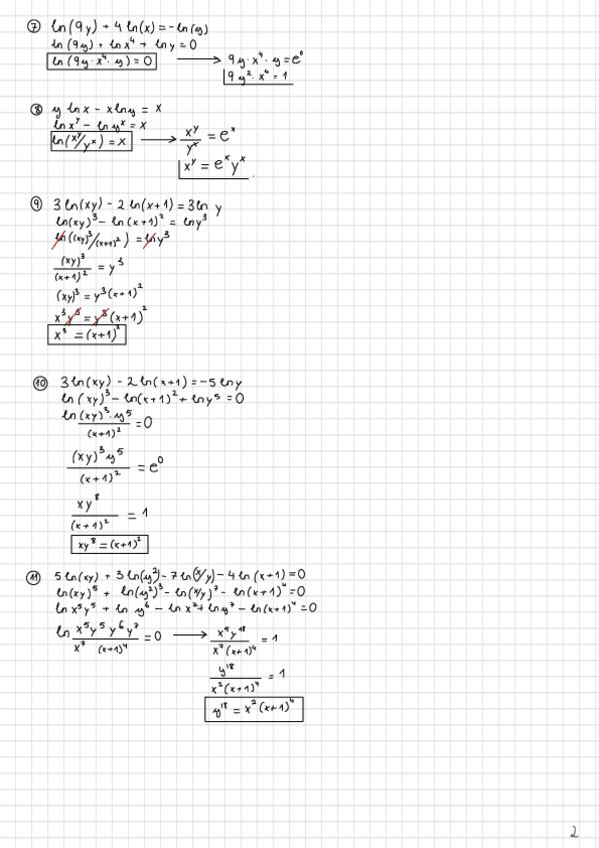 ⑦ ln(9y) + 4 ln(x) = -ln(y)
ln(9y) + ln x⁴ + ln y = 0
ln(9y·x⁴·y) = 0 → 9y·x⁴·y = e⁰
9y²·x⁴ = 1
⑧ y ln x - x ln y = x
ln x^y - ln y^x = x
ln(x^y/y^x) = x → x^y/y^x = e^x
x^y = e^x y^x
⑨ 3 ln(xy) - 2 ln(x+1) = 3 ln y
ln(xy)³ - ln(x+1)² = ln y³
ln((xy)³/(x+1)²) = ln y³
(xy)³/(x+1)² = y³
(xy)³ = y³(x+1)²
x³y³ = y³(x+1)²
x³ = (x+1)²
⑩ 3 ln(xy) - 2 ln(x+1) = -5 ln y
ln(xy)³ - ln(x+1)² + ln y⁵ = 0
ln (xy)³·y⁵/(x+1)² = 0
(xy)³y⁵/(x+1)² = e⁰
xy⁸/(x+1)² = 1
xy⁸ = (x+1)²
⑪ 5 ln(xy) + 3 ln(y²) - 7 ln(x/y) - 4 ln(x+1) = 0
ln(xy)⁵ + ln(y²)³ - ln(x/y)⁷ - ln(x+1)⁴ = 0
ln x⁵y⁵ + ln y⁶ - ln x⁷ + ln y⁷ - ln(x+1)⁴ = 0
ln x⁵y⁵y⁶y⁷/x⁷ (x+1)⁴ = 0 → x⁵y¹⁸/x⁷(x+1)⁴ = 1
y¹⁸/x²(x+1)⁴ = 1
y¹⁸ = x²(x+1)⁴
2